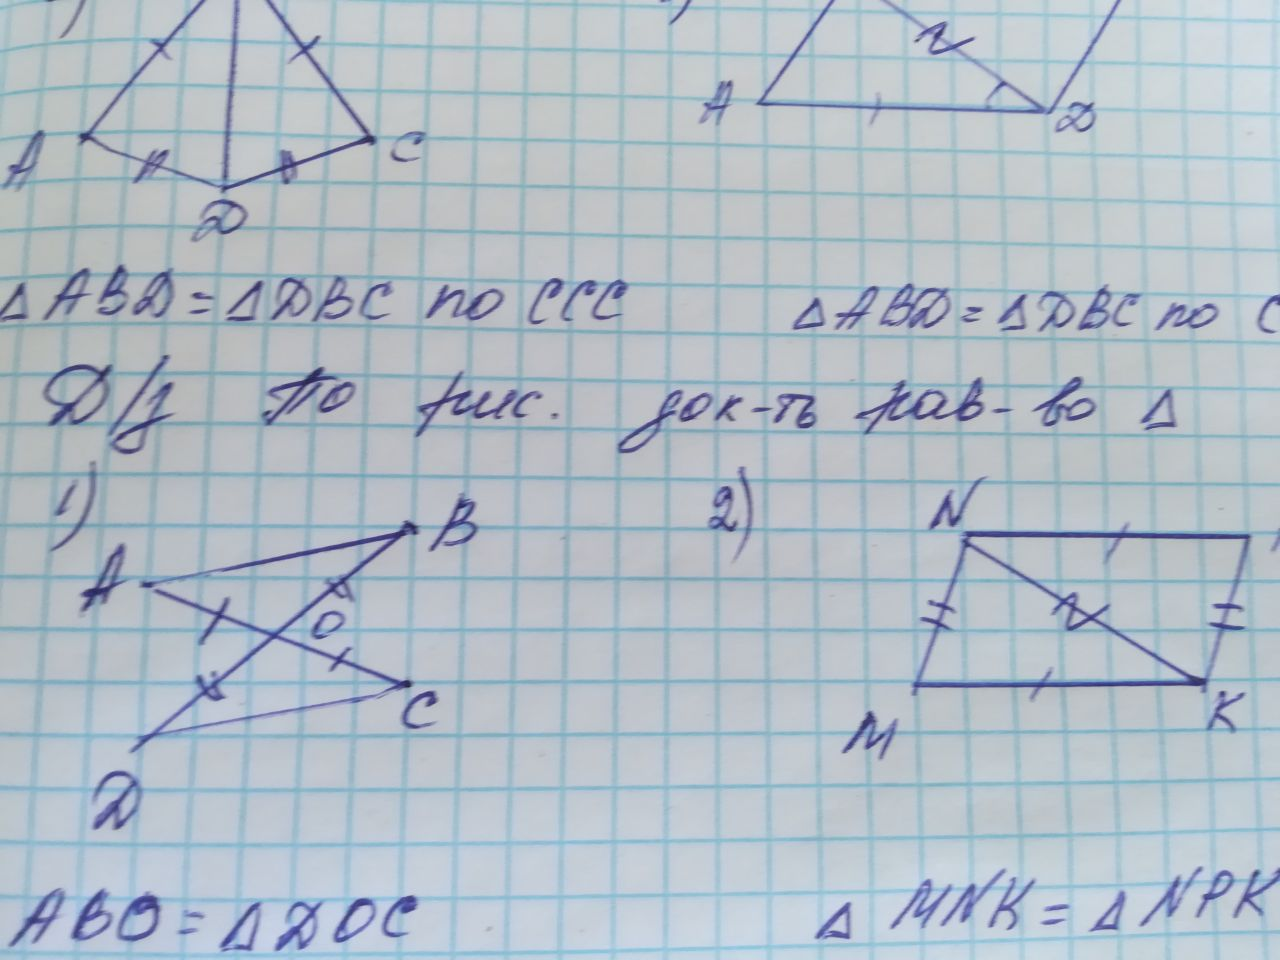 A C
D
A D
△ ABD = △ DBC по ССС
△ ABD = △ DBC по С
Д/з По рис. док-ть рав-во △
1)
A B
O
C
D
2)
N
M K
ABO = △ DOC
△ MNK = △ NPK